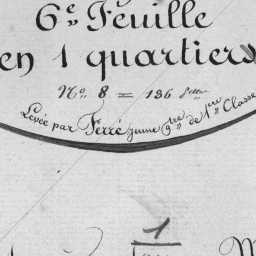 6e Feuille
en 1 quartier
No. 8 = 136
Levée par Ferré jeune Gre de 1re Classe
1